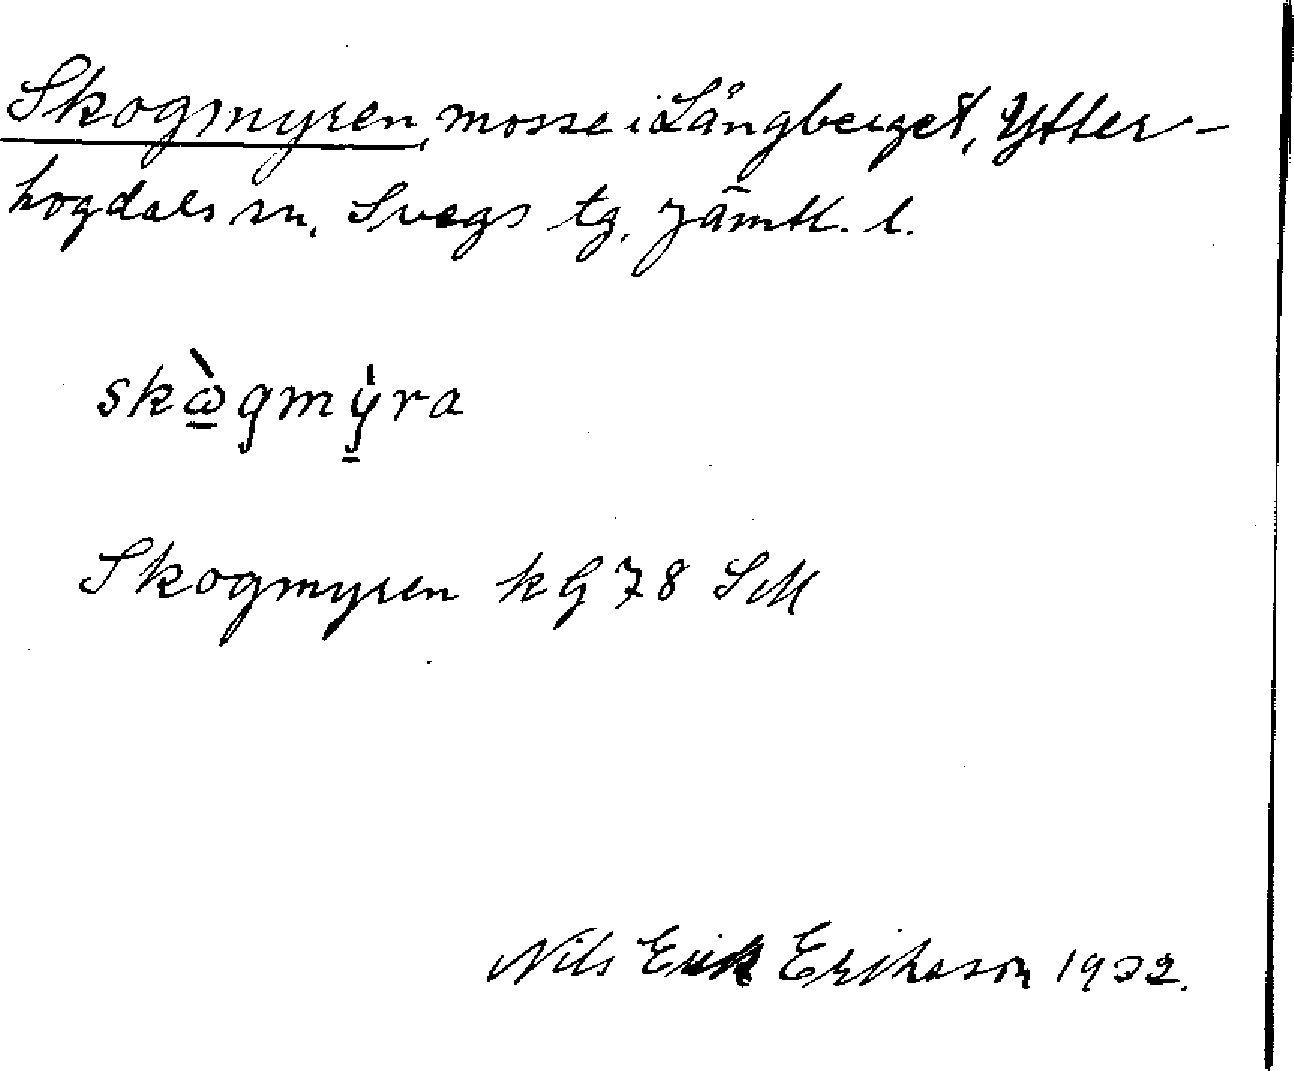 Skogmyren, mosse i Långberget, Ytter-
hogdals sn, Svegs tg, Jämtl. l.
skὼ̲gmý̲ra
Skogmyren kG 78 SM
Nils Erik Erikson 1932.